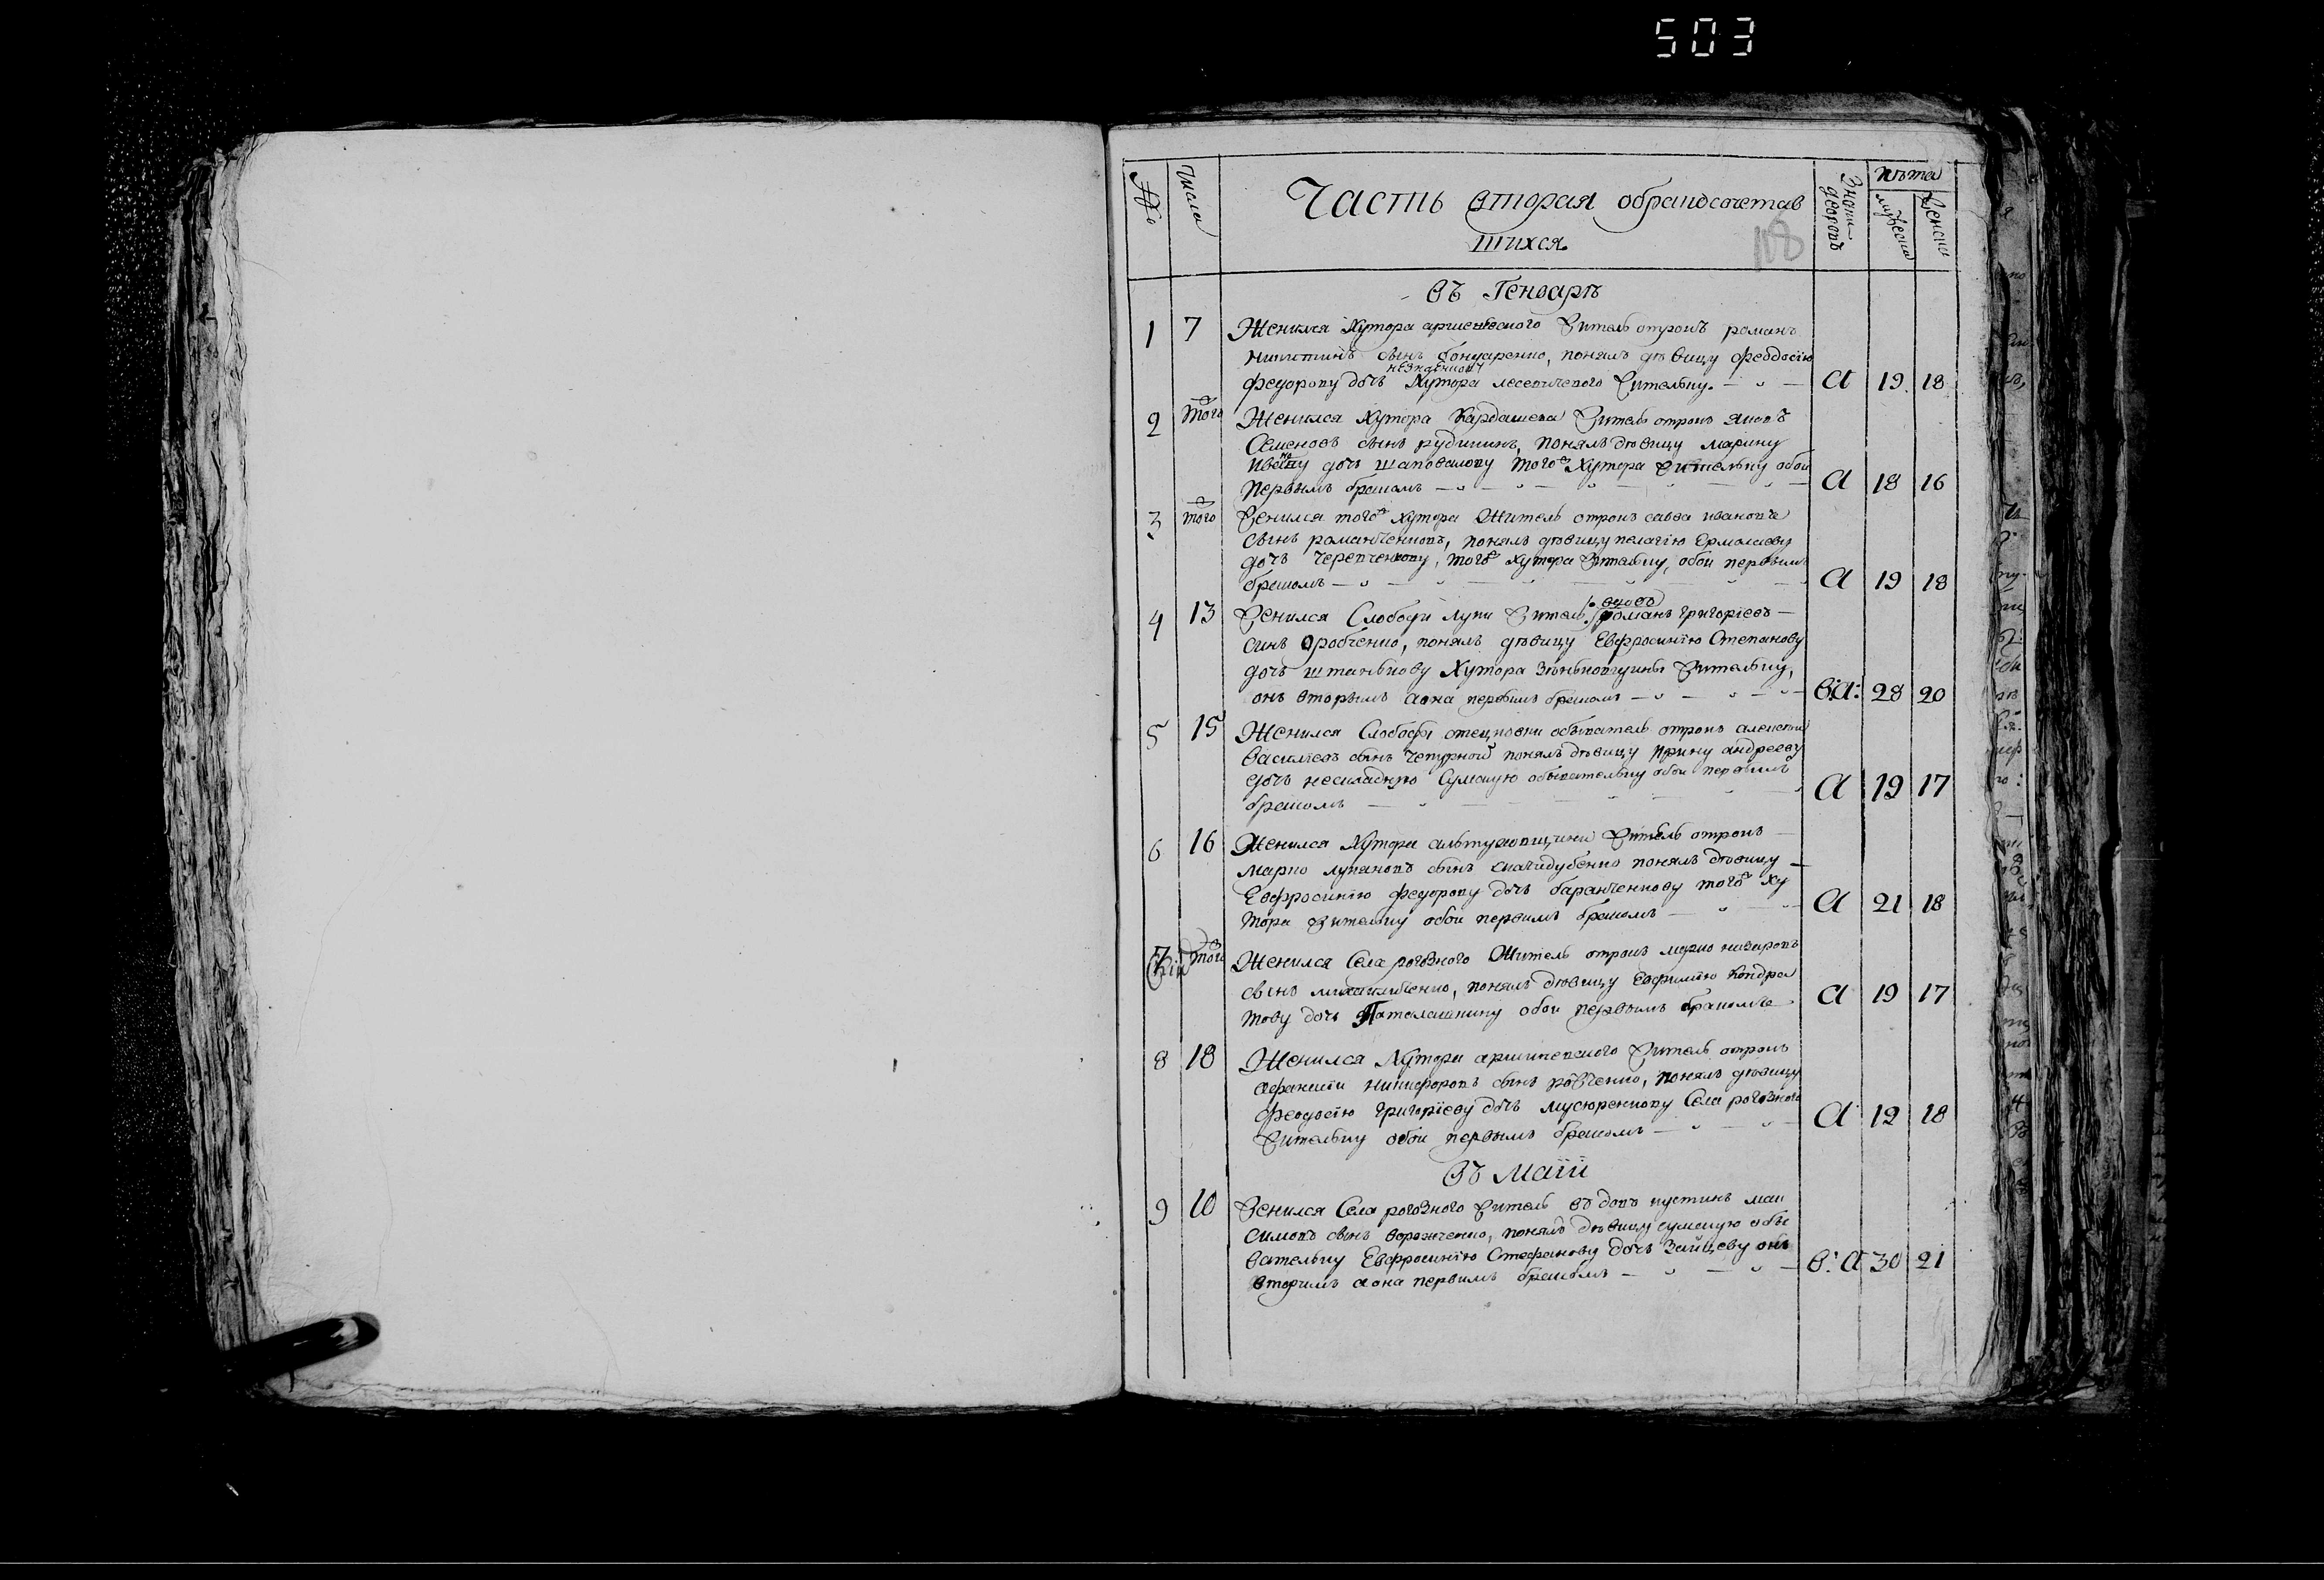 503
№ Числа Часть вторая обракосочетав Лѣта
шихся мужеска женска
118
въ Генварѣ
1 7 Женился Хутора житель отрокъ романъ
сынъ бондаренко, понялъ дѣвицу феодосію
федорову дочь Хутора жительку. А 19 18
2 того Женился Хутора Кардашева житель отрокъ яковъ
Семеновъ сынъ рудикинъ, понялъ дѣвицу марину
Иванову дочь шаповалову того Хутора жительку обои
первымъ бракомъ А 18 16
3 того Женился того хутора житель отрокъ савва ивановъ
сынъ романченковъ, понялъ дѣвицу пелагію Ермолаеву
дочь того хутора жительку, обои первымъ
бракомъ А 19 18
вдовъ
4 13 Женился Слободи луки житель романъ григоріевъ
синъ понялъ дѣвицу Евфросинію Степанову
дочь штанкову Хутора жительку,
онъ вторымъ а она первымъ бракомъ в:А: 28 20
5 15 Женился Слободи обыватель отрокъ алексѣй
Василіевъ сынъ чепурной понялъ дѣвицу Ирину андрееву
дочь нескладную Сумскую обывательку обои первымъ
бракомъ А 19 17
6 16 Женился Хутора житель отрокъ
марко лукяновъ сынъ скачидубенко понялъ дѣвицу
Евфросинію федорову дочь баранченкову того ху
тора жительку обои первымъ бракомъ А 21 18
7 того Женился Села рогозного житель отрокъ марко назаровъ
сынъ понялъ дѣвицу Евфимію Кондра
тову дочь обои первымъ бракомъ А 19 17
8 18 Женился Хутора житель отрокъ
афанасій никифоровъ сынъ понялъ дѣвицу
феодосію григоріеву дочь Села рогозного
жительку обои первымъ бракомъ А 19 18
въ Маіи
9 10 Женился Села рогозного житель вдовъ иустинъ мак
симовъ сынъ понялъ дѣвицу сумскую обы
вательку Евфросинію Стефанову дочь Зайцеву онъ
вторимъ а она первимъ бракомъ в:А 30 21